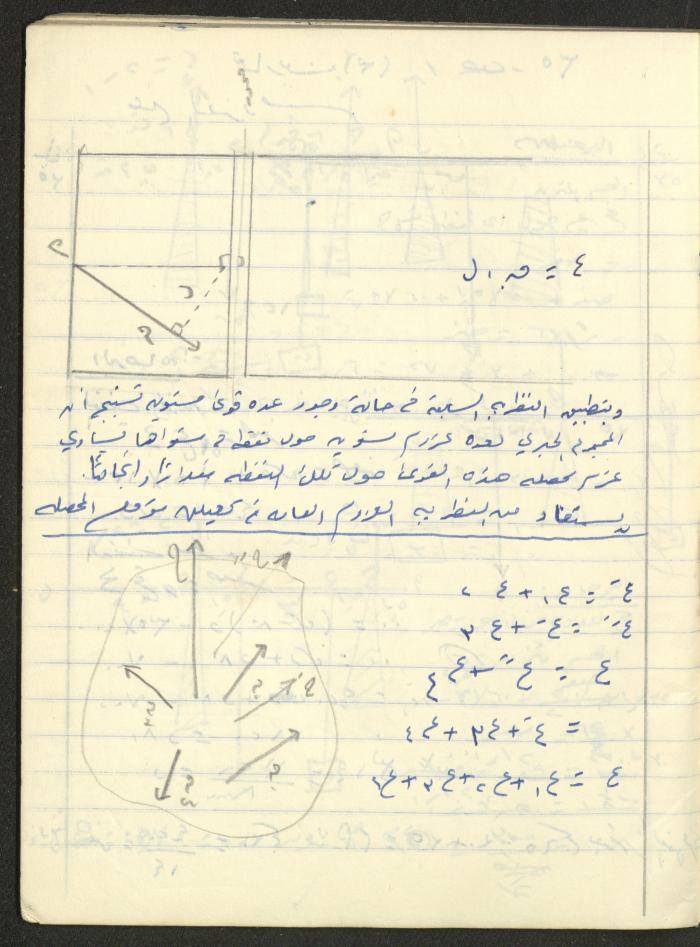 ع = ق . ل
وبتطبيق النظرية السابقة في حالة وجود عدة قوى مستوية نستنتج ان
المجموع الجبري لعدة عزوم لقوى حول نقطة في مستواها تساوي
عزم محصلة هذه القوى حول تلك النقطة مقدارًا واتجاهًا.
يستفاد من نظرية العزوم العامة في تعيين موقع المحصلة
عَ = ع١ + ع٢
عً = عَ + ع٣
ع = عً + ع٤
= عَ + ع٣ + ع٤
ع = ع١ + ع٢ + ع٣ + ع٤